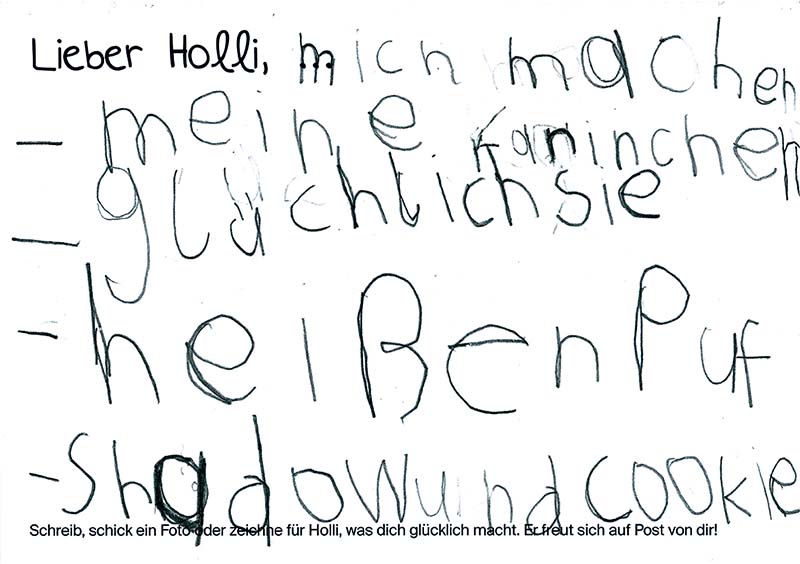 Lieber Holli, mich machen
– meine Kaninchen
– glüchlich sie
– heißen Puf
– Shadow und cookie
Schreib, schick ein Foto oder zeichne für Holli, was dich glücklich macht. Er freut sich auf Post von dir!